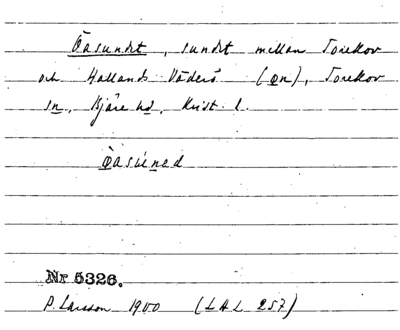 Öasundet, sundet mellan Torekov
och Hallands Väderö (ön), Torekov
sn, Bjäre hd, Krist. l.
Öasúnəd
Nr 5326.
P. Larsson 1900 (LAL 257)